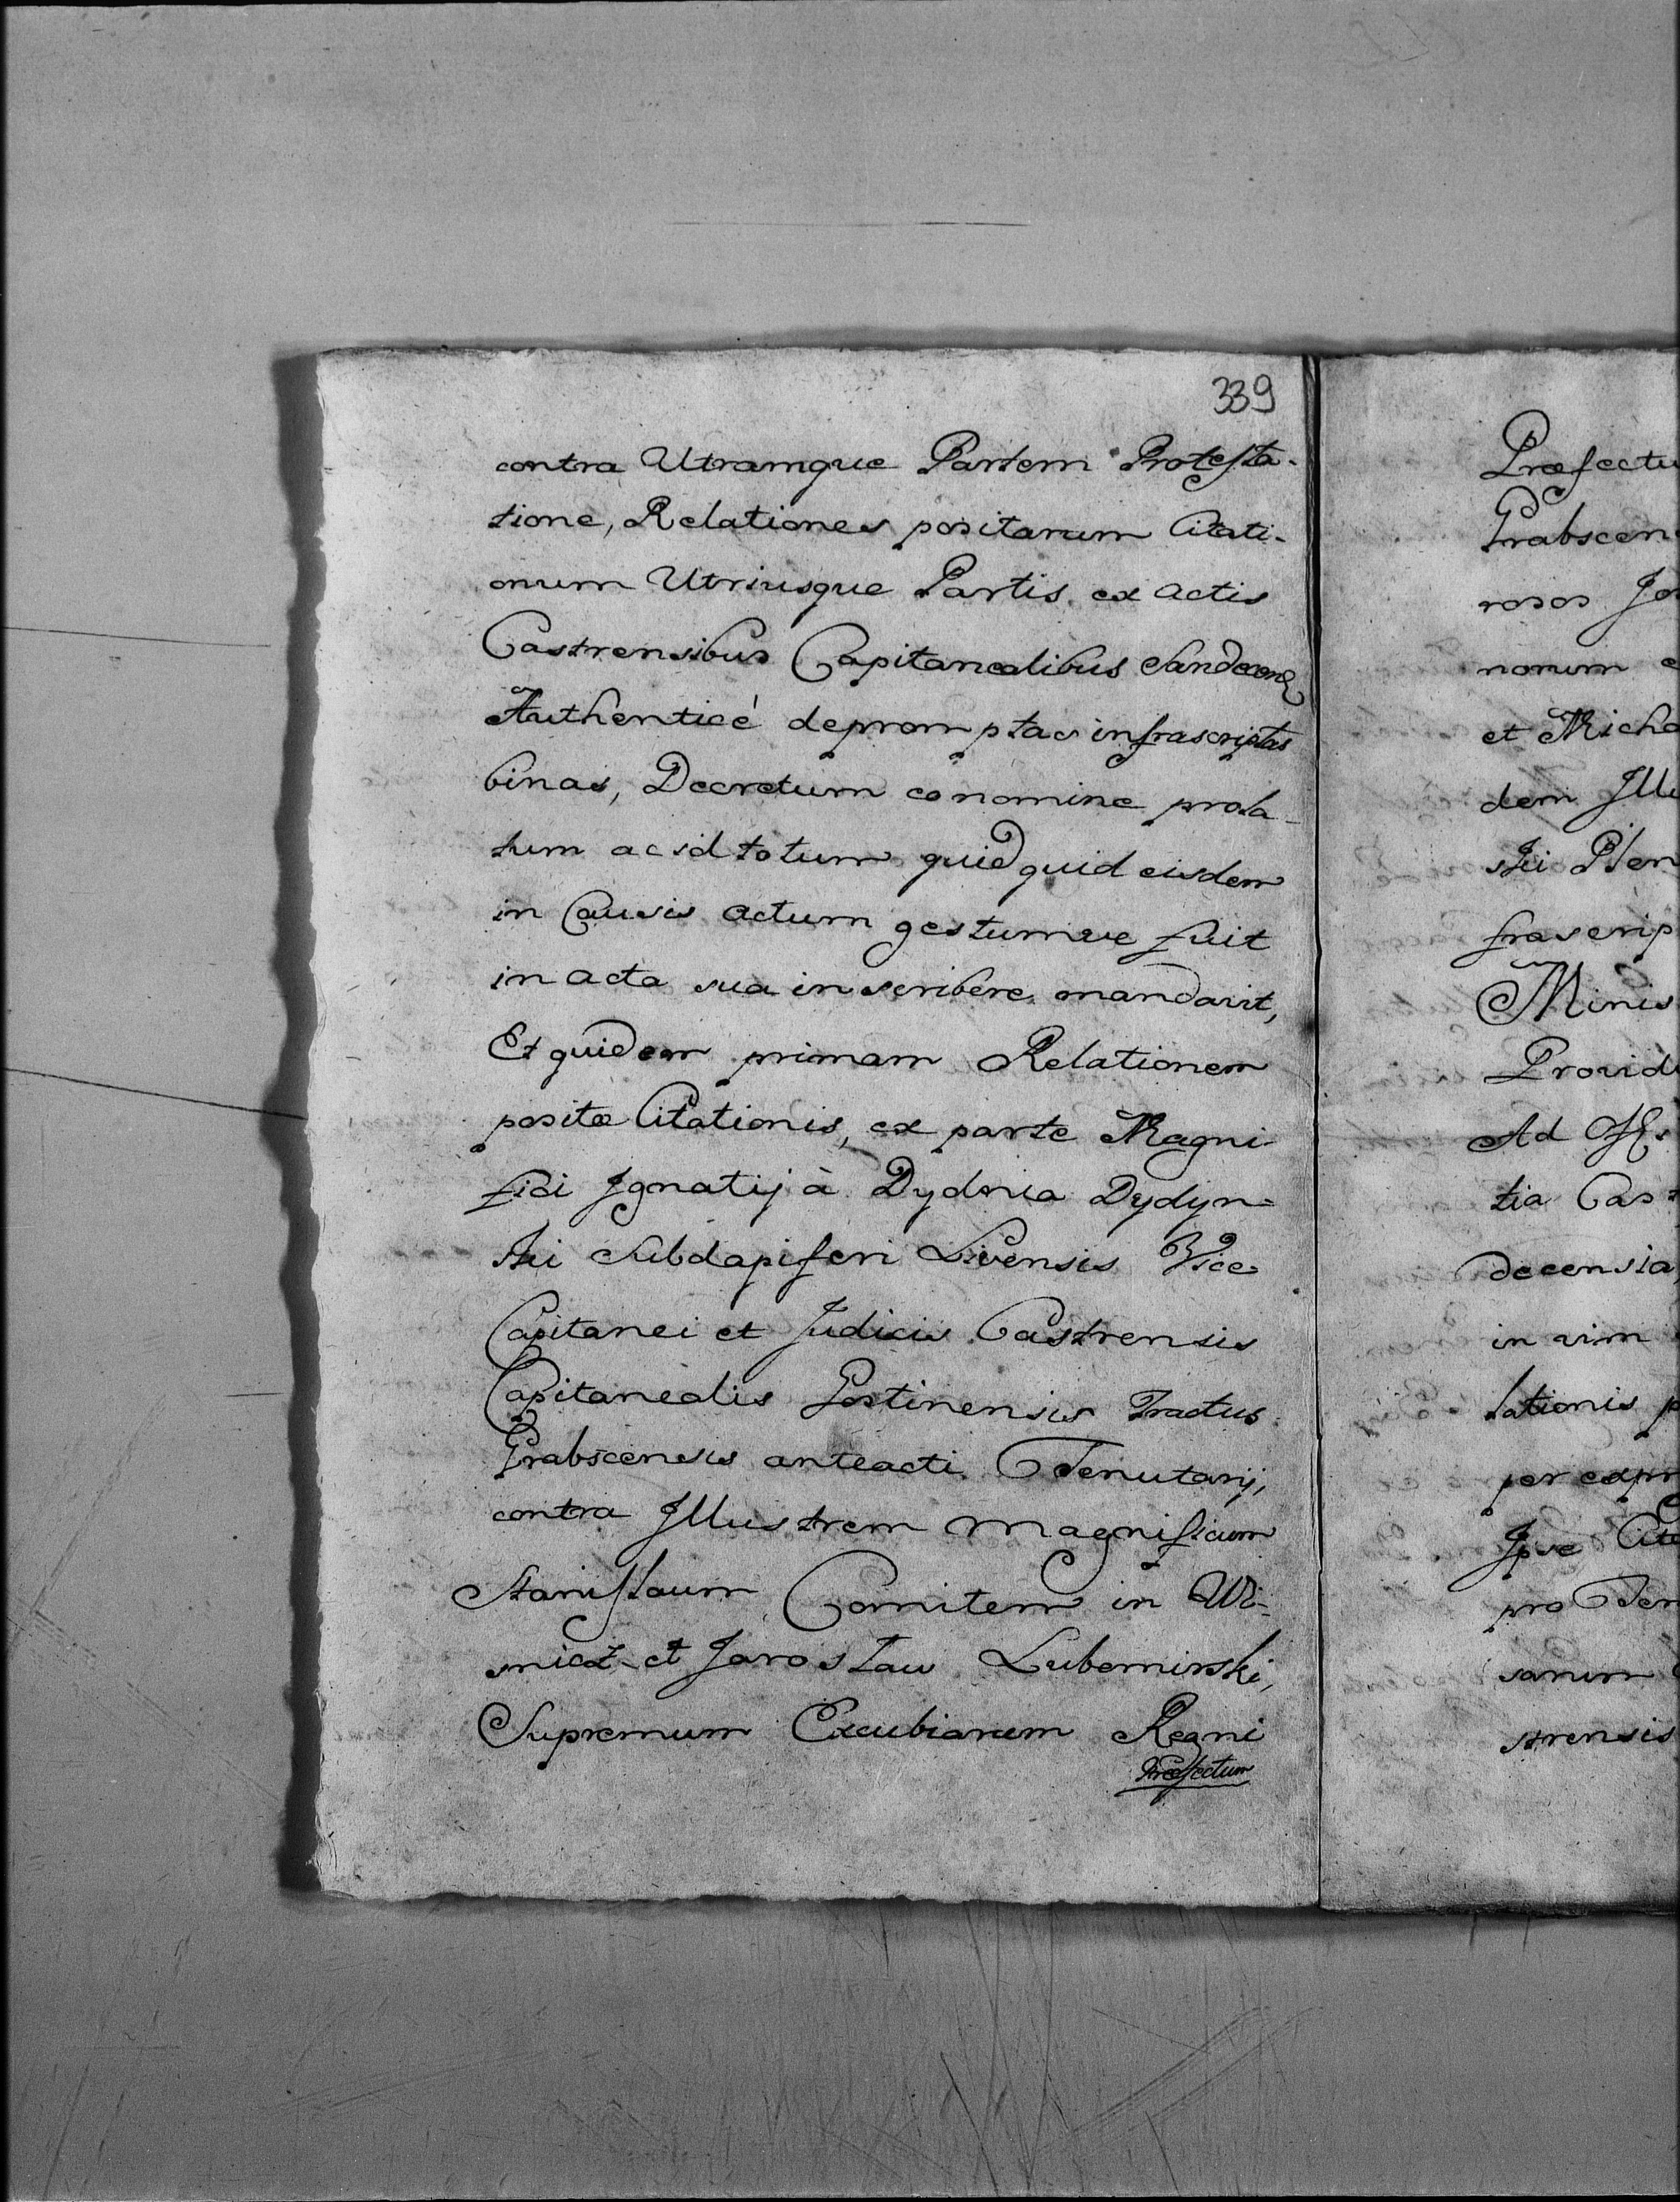 339
contra Utramque Partem Protesta-
tione, Relationes positarum Citati-
onum Utriusque Partis ex actis
Castrensibus Capitanealibus
Authenticé depromptas infrascriptas
binas, Decretum eo nomine prola-
tum ac id totum quidquid eisdem
in Causis actum gestumve fuit
in acta sua inscribere mandavit,
Et quidem primam Relationem
positæ Citationis, ex parte Magni
fici Ignatij à Dydnia Dydyn=
ski Subdapiferi Livensis Vice
Capitanei et Judicis Castrensis
Capitanealis Gostinensis Tractus
Grabscensis anteacti Tenutarij,
contra Illustrem Magnificum
Stanislaum Comitem in Wi-
snicz et Jarosław Lubomirski,
Supremum Excubiarum Regni
Præfectum
Præfectu
Grabscen
rosos Jo
norum
et Micha
dem Illu
ski Plen
frascrip
Minis
Provid
Ad
tia Cast
decensia
in vim
lationis p
per expr
Ipse Cit
pro Ten
sarum
strensis